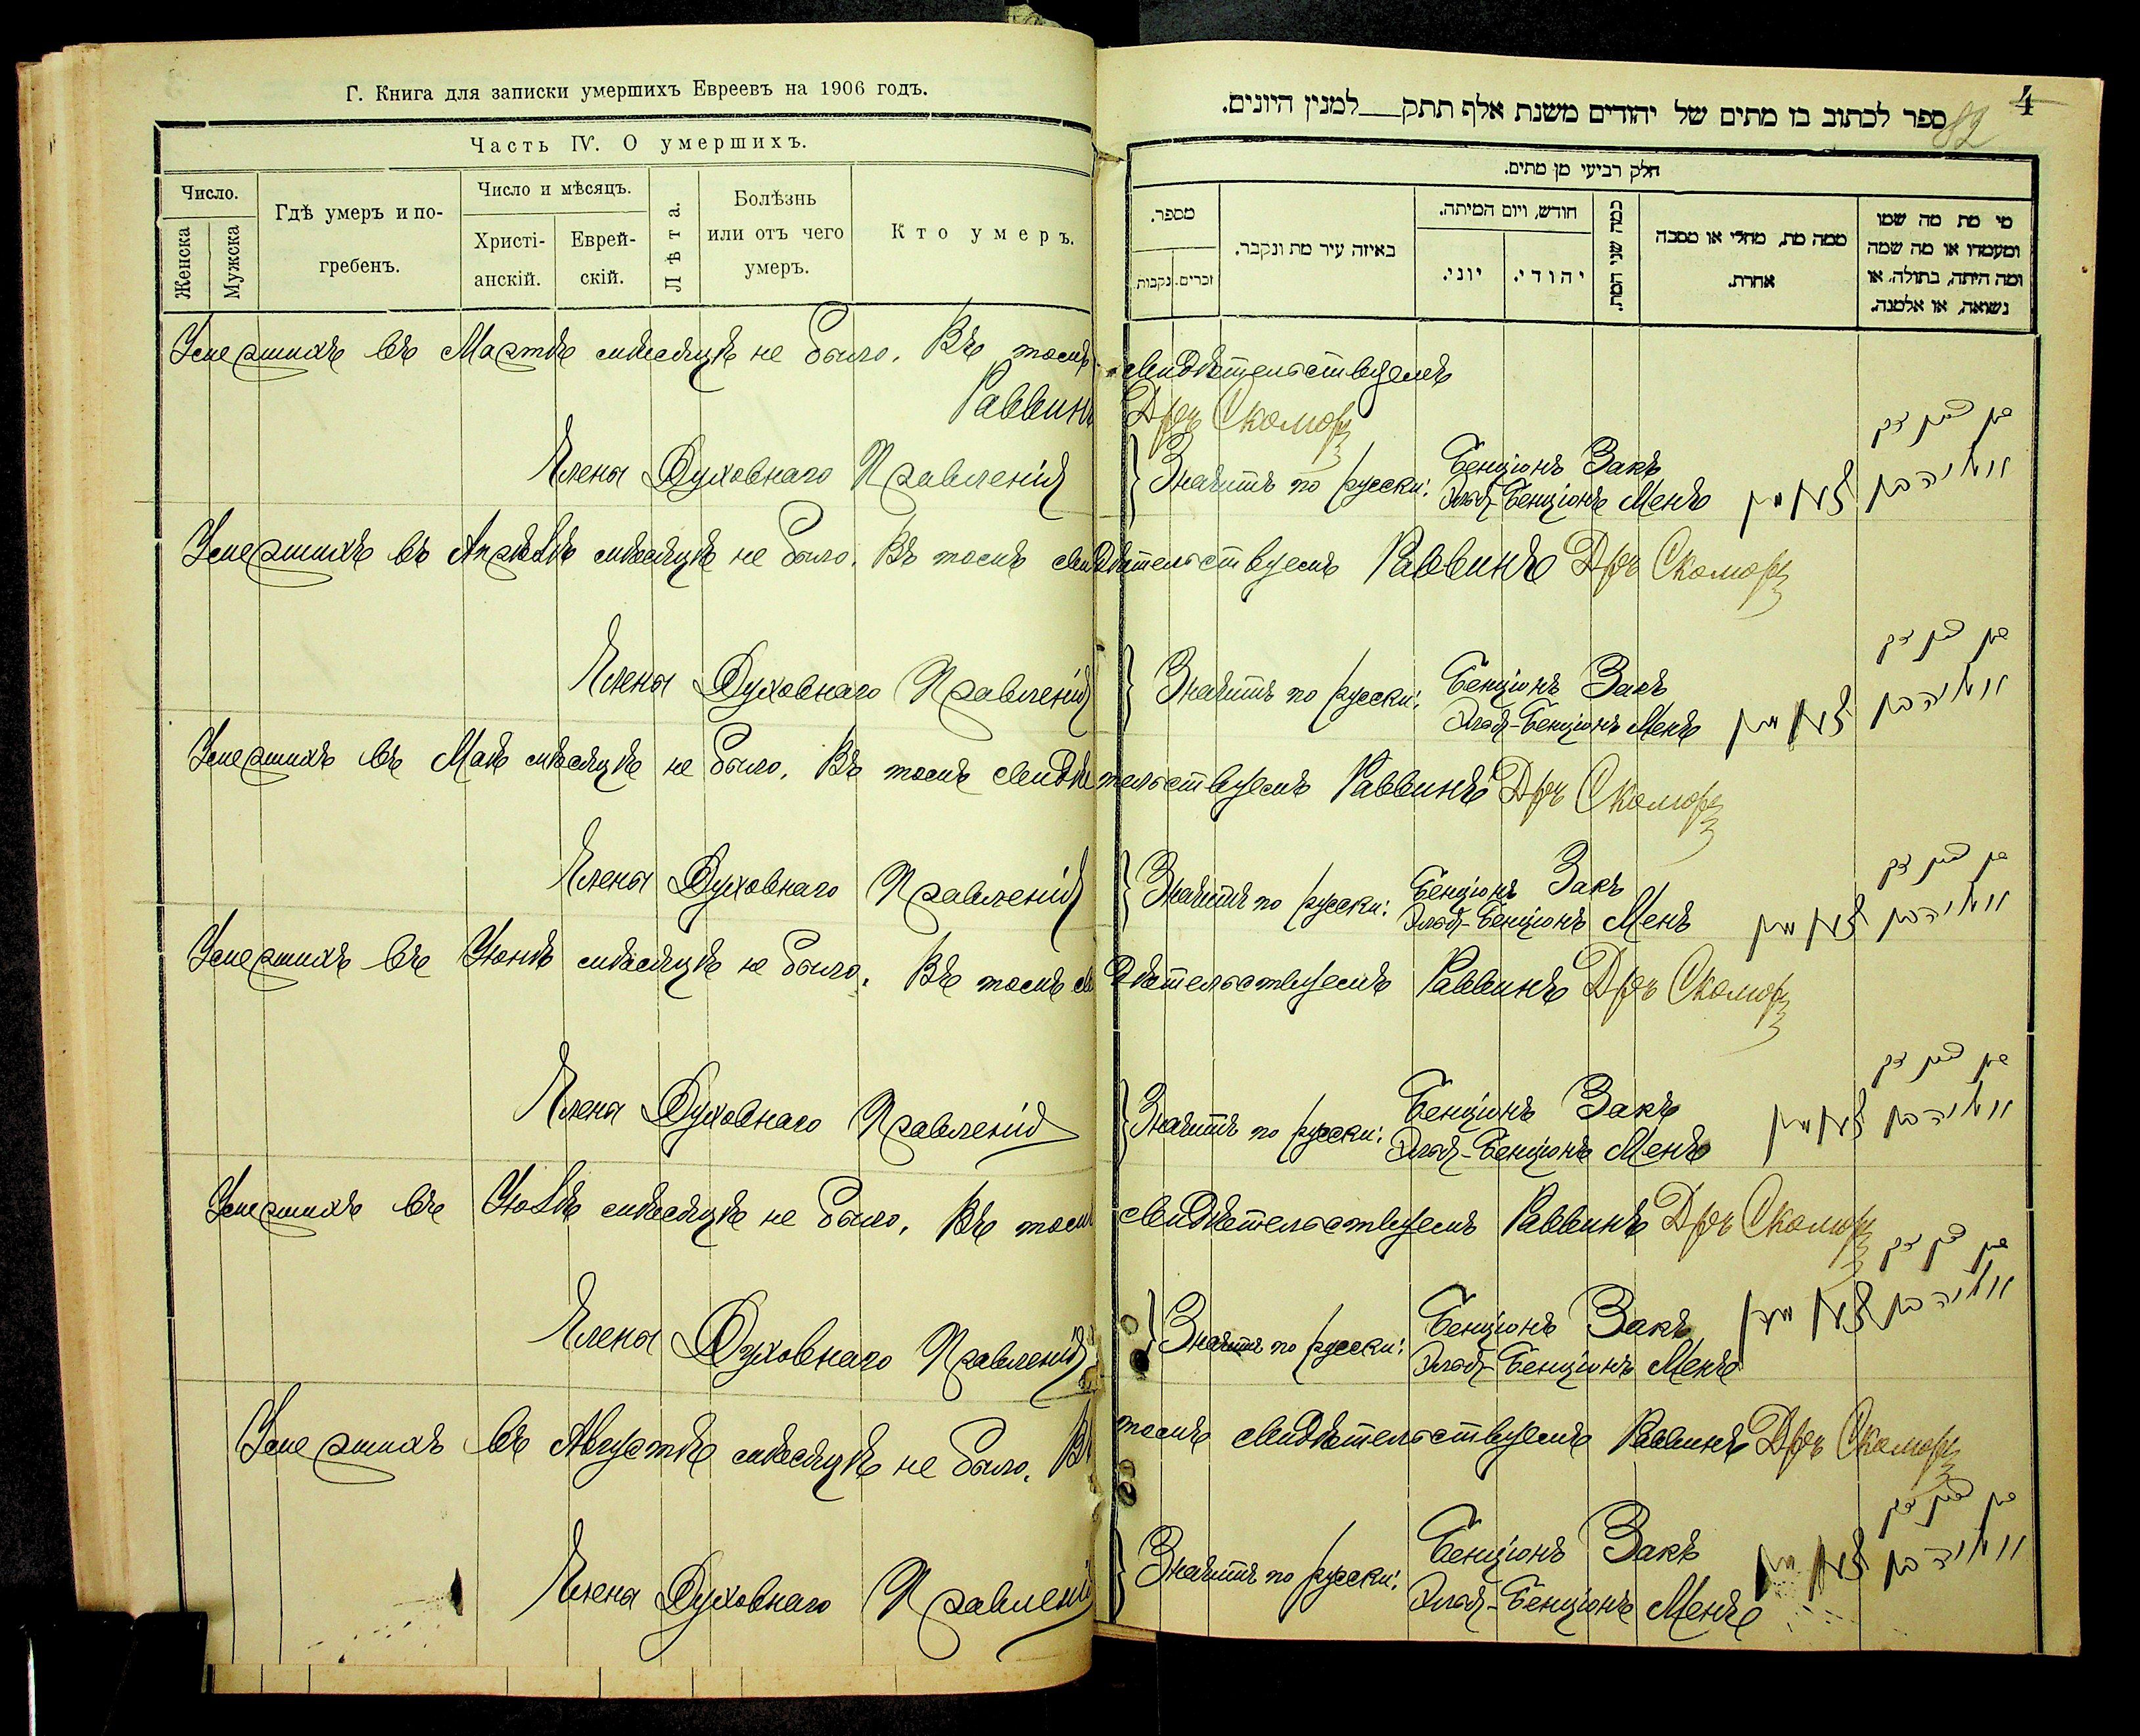 Г. Книга для записки умершихъ Евреевъ на 1906 годъ.
Часть IV. О умершихъ.
Число.
Женска
Мужска
Гдѣ умеръ и по-
гребенъ.
Число и мѣсяцъ.
Христі-
анскій.
Еврей-
скій.
Лѣта.
Болѣзнь
или отъ чего
умеръ.
Кто умеръ.
4
82
ספר לכתוב בו מתים של יהודים משנת אלף תתק___למנין היונים.
חלק רביעי מן מתים.
מספר.
נקבות.
זכרים.
באיזה עיר מת ונקבר.
חודש, ויום המיתה.
יוני.
יהודי.
כמה שני המת.
ממה מת, מחלי או מסבה
אחרת.
מי מת מה שמו
ומעמדו או מה שמה
ומה היתה, בתולה, או
נשואה, או אלמנה.
Умершихъ въ Мартѣ мѣсяцѣ не было. Въ томъ свидѣтельствуемъ
Раввинъ Дръ Скоморъ
Члены Духовнаго Правленія } Значитъ по русски: Бенціонъ Закъ
Бенціонъ Менъ
Умершихъ въ Апрѣлѣ мѣсяцѣ не было. Въ томъ свидѣтельствуемъ Раввинъ Дръ Скоморъ
Члены Духовнаго Правленія } Значитъ по русски: Бенціонъ Закъ
Бенціонъ Менъ
Умершихъ въ Маѣ мѣсяцѣ не было. Въ томъ свидѣтельствуемъ Раввинъ Дръ Скоморъ
Члены Духовнаго Правленія } Значитъ по русски: Бенціонъ Закъ
Бенціонъ Менъ
Умершихъ въ Іюнѣ мѣсяцѣ не было. Въ томъ свидѣтельствуемъ Раввинъ Дръ Скоморъ
Члены Духовнаго Правленія } Значитъ по русски: Бенціонъ Закъ
Бенціонъ Менъ
Умершихъ въ Іюлѣ мѣсяцѣ не было. Въ томъ свидѣтельствуемъ Раввинъ Дръ Скоморъ
Члены Духовнаго Правленія } Значитъ по русски: Бенціонъ Закъ
Бенціонъ Менъ
Умершихъ въ Августѣ мѣсяцѣ не было. Въ томъ свидѣтельствуемъ Раввинъ Дръ Скоморъ
Члены Духовнаго Правленія } Значитъ по русски: Бенціонъ Закъ
Бенціонъ Менъ